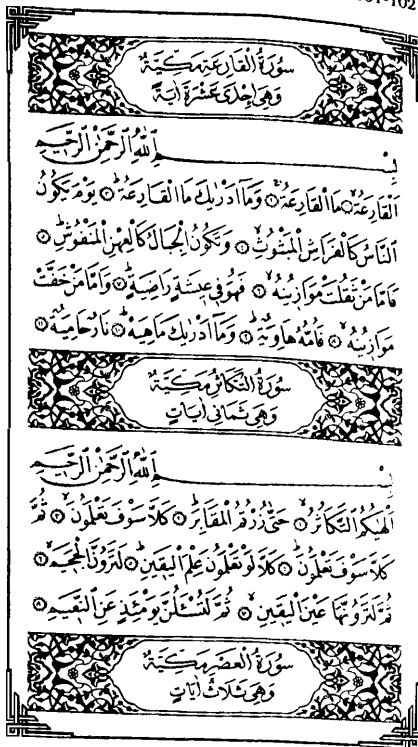 101-102
سُورَةُ الْقَارِعَةِ مَكِّيَّةٌ
وَهِيَ اِحْدٰى عَشْرَةَ اٰيَةً
بِسْمِ اللّٰهِ الرَّحْمٰنِ الرَّحِيمِ
اَلْقَارِعَةُ ۙ ١ مَا الْقَارِعَةُ ۚ ٢ وَمَٓا اَدْرٰيكَ مَا الْقَارِعَةُ ۜ ٣ يَوْمَ يَكُونُ
النَّاسُ كَالْفَرَاشِ الْمَبْثُوثِ ۙ ٤ وَتَكُونُ الْجِبَالُ كَالْعِهْنِ الْمَنْفُوشِ ۜ ٥
فَاَمَّا مَنْ ثَقُلَتْ مَوَازِينُهُ ۙ ٦ فَهُوَ فِي عِيشَةٍ رَاضِيَةٍ ۜ ٧ وَاَمَّا مَنْ خَفَّتْ
مَوَازِينُهُ ۙ ٨ فَاُمُّهُ هَاوِيَةٌ ۜ ٩ وَمَٓا اَدْرٰيكَ مَا هِيَهْ ۜ ١٠ نَارٌ حَامِيَةٌ ١١
سُورَةُ التَّكَاثُرِ مَكِّيَّةٌ
وَهِيَ ثَمَانِي اٰيَاتٍ
بِسْمِ اللّٰهِ الرَّحْمٰنِ الرَّحِيمِ
اَلْهٰيكُمُ التَّكَاثُرُ ۙ ١ حَتّٰى زُرْتُمُ الْمَقَابِرَ ۜ ٢ كَلَّا سَوْفَ تَعْلَمُونَ ۙ ٣ ثُمَّ
كَلَّا سَوْفَ تَعْلَمُونَ ۜ ٤ كَلَّا لَوْ تَعْلَمُونَ عِلْمَ الْيَقِينِ ۜ ٥ لَتَرَوُنَّ الْجَحِيمَ ۙ ٦
ثُمَّ لَتَرَوُنَّهَا عَيْنَ الْيَقِينِ ۙ ٧ ثُمَّ لَتُسْـَٔلُنَّ يَوْمَئِذٍ عَنِ النَّعِيمِ ٨
سُورَةُ الْعَصْرِ مَكِّيَّةٌ
وَهِيَ ثَلَاثُ اٰيَاتٍ